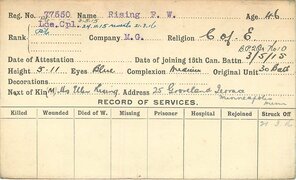 Reg. No. 77550 Name Rising F. W. Age 46
Rank Lce. Cpl. Company M.G. Religion C of E
Date of Attestation Date of Joining 15th Can. Battn. 3/5/15
Height 5-11 Eyes Blue Complexion Medium Original Unit 30 Batt
Decorations
Next of Kin Mrs Rising Address 25 Groveland Terrace
Minneapolis
Minn
RECORD OF SERVICES.
Killed Wounded Died of W. Missing Prisoner Hospital Rejoined Struck Off